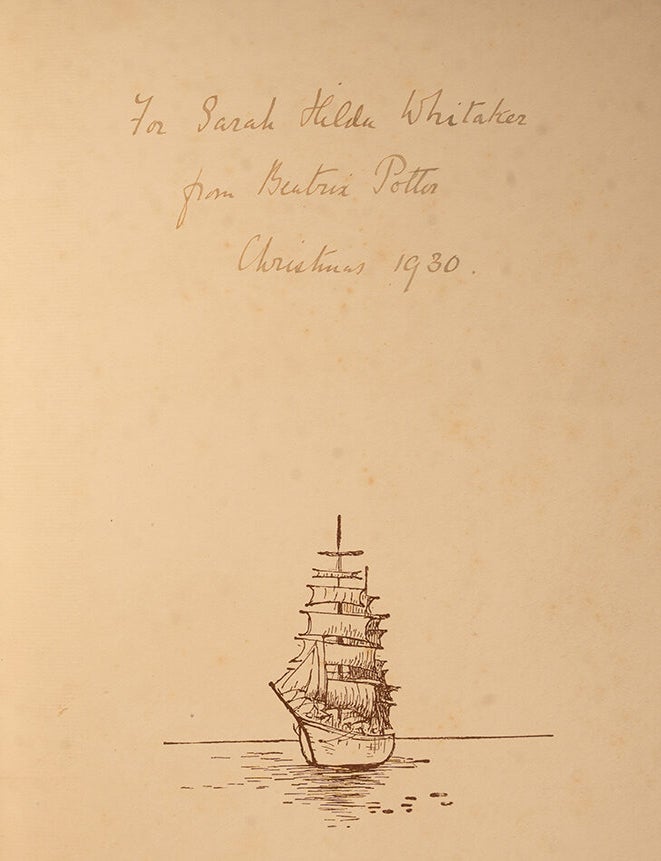 For Sarah Hilda Whitaker
from Beatrix Potter
Christmas 1930.